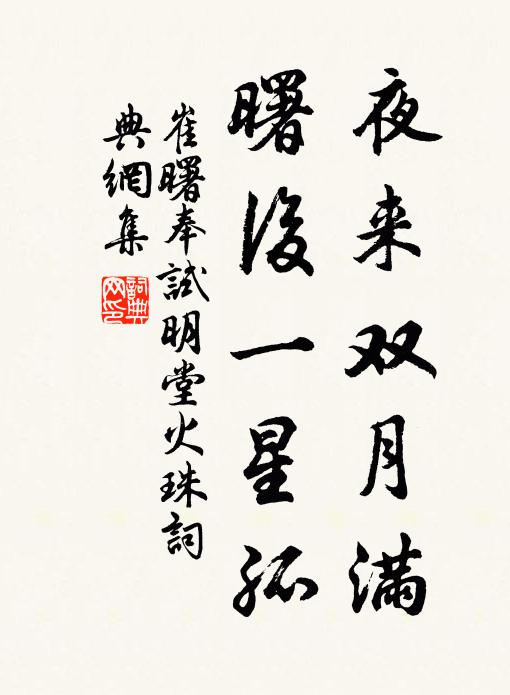 夜来双月满
曙後一星孤
崔曙奉試明堂火珠詞
典網集
詞典网印